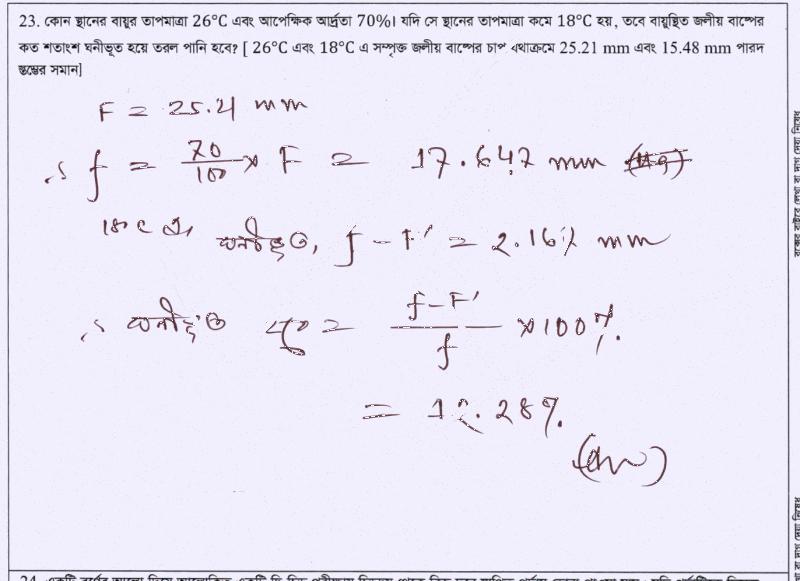 23. কোন স্থানের বায়ুর তাপমাত্রা 26°C এবং আপেক্ষিক আর্দ্রতা 70%। যদি সে স্থানের তাপমাত্রা কমে 18°C হয়, তবে বায়ুস্থিত জলীয় বাষ্পের
কত শতাংশ ঘনীভূত হয়ে তরল পানি হবে? [ 26°C এবং 18°C এ সম্পৃক্ত জলীয় বাষ্পের চাপ যথাক্রমে 25.21 mm এবং 15.48 mm পারদ
স্তম্ভের সমান]
F = 25.21 mm
∴ f = 70/100 × F = 17.647 mm
18°C এ, ঘনীভূত, f - F' = 2.167 mm
∴ ঘনীভূত = f-F'/f × 100%.
= 12.28%.
(Ans)